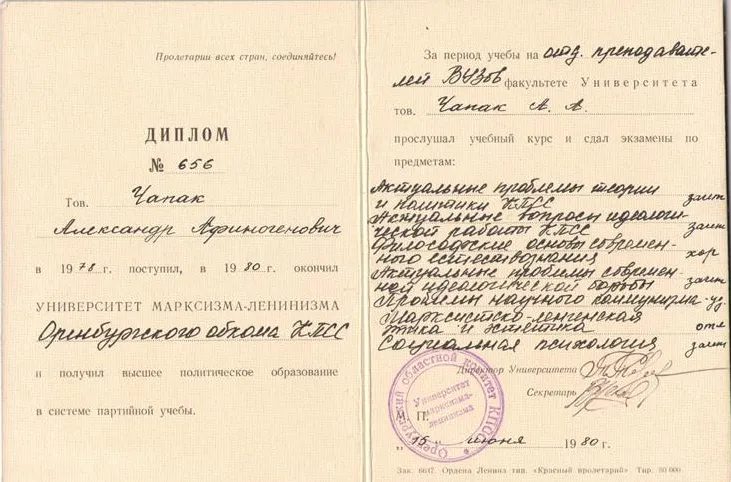 Пролетарии всех стран, соединяйтесь!
ДИПЛОМ
№ 656
Тов. Чапак
Александр Афиногенович
в 1978 г. поступил, в 1980 г. окончил
УНИВЕРСИТЕТ МАРКСИЗМА-ЛЕНИНИЗМА
Оренбургского обкома КПСС
и получил высшее политическое образование
в системе партийной учебы.
За период учебы на отд. преподавате-
лей ВУЗов факультете Университета
тов. Чапак А. А.
прослушал учебный курс и сдал экзамены по
предметам:
Актуальные проблемы теории
и политики КПСС зачет
Актуальные вопросы идеологи-
ческой работы КПСС зачет
Философские основы современ-
ного естествознания хор
Актуальные проблемы современ-
ной идеологической борьбы зачет
Проблемы научного коммунизма - уд.
Марксистско-ленинская
этика и эстетика отл
Социальная психология зачет
Директор Университета
Секретарь
Оренбургский областной комитет КПСС
Университет
марксизма-
ленинизма
М. П.
„15 " июня 1980 г.
Зак. 6647. Ордена Ленина тип. «Красный пролетарий» Тир. 80 000